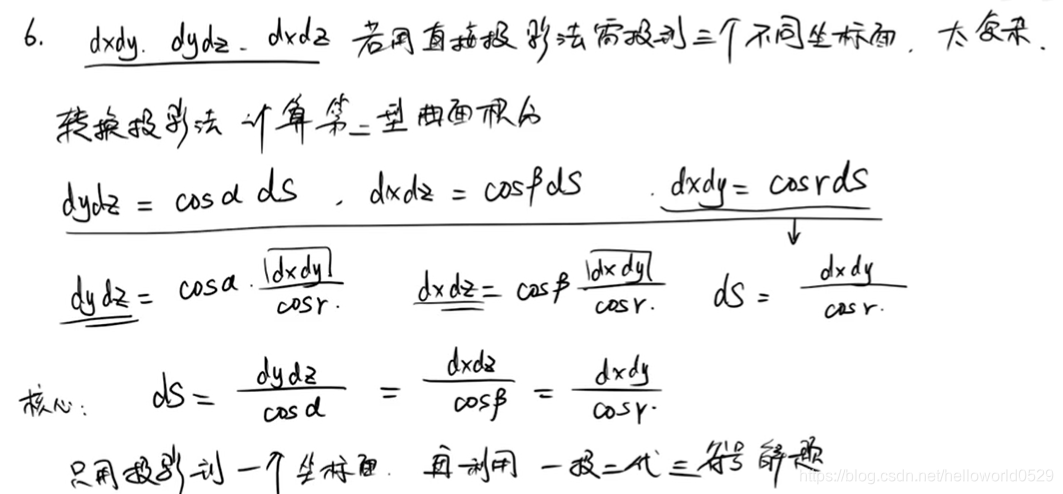 6. dxdy. dydz. dxdz 若用直接投影法需投到三个不同坐标面. 太复杂.
转换投影法 计算第二型曲面积分
dydz = cosα dS , dxdz = cosβ dS . dxdy = cosr dS
↓
dydz = cosα · dxdy / cosr. dxdz = cosβ dxdy / cosr. dS = dxdy / cosr.
核心: dS = dydz / cosα = dxdz / cosβ = dxdy / cosr.
只用投影到一个坐标面. 再利用 一投二代三符号 解题
https://blog.csdn.net/helloworld0529